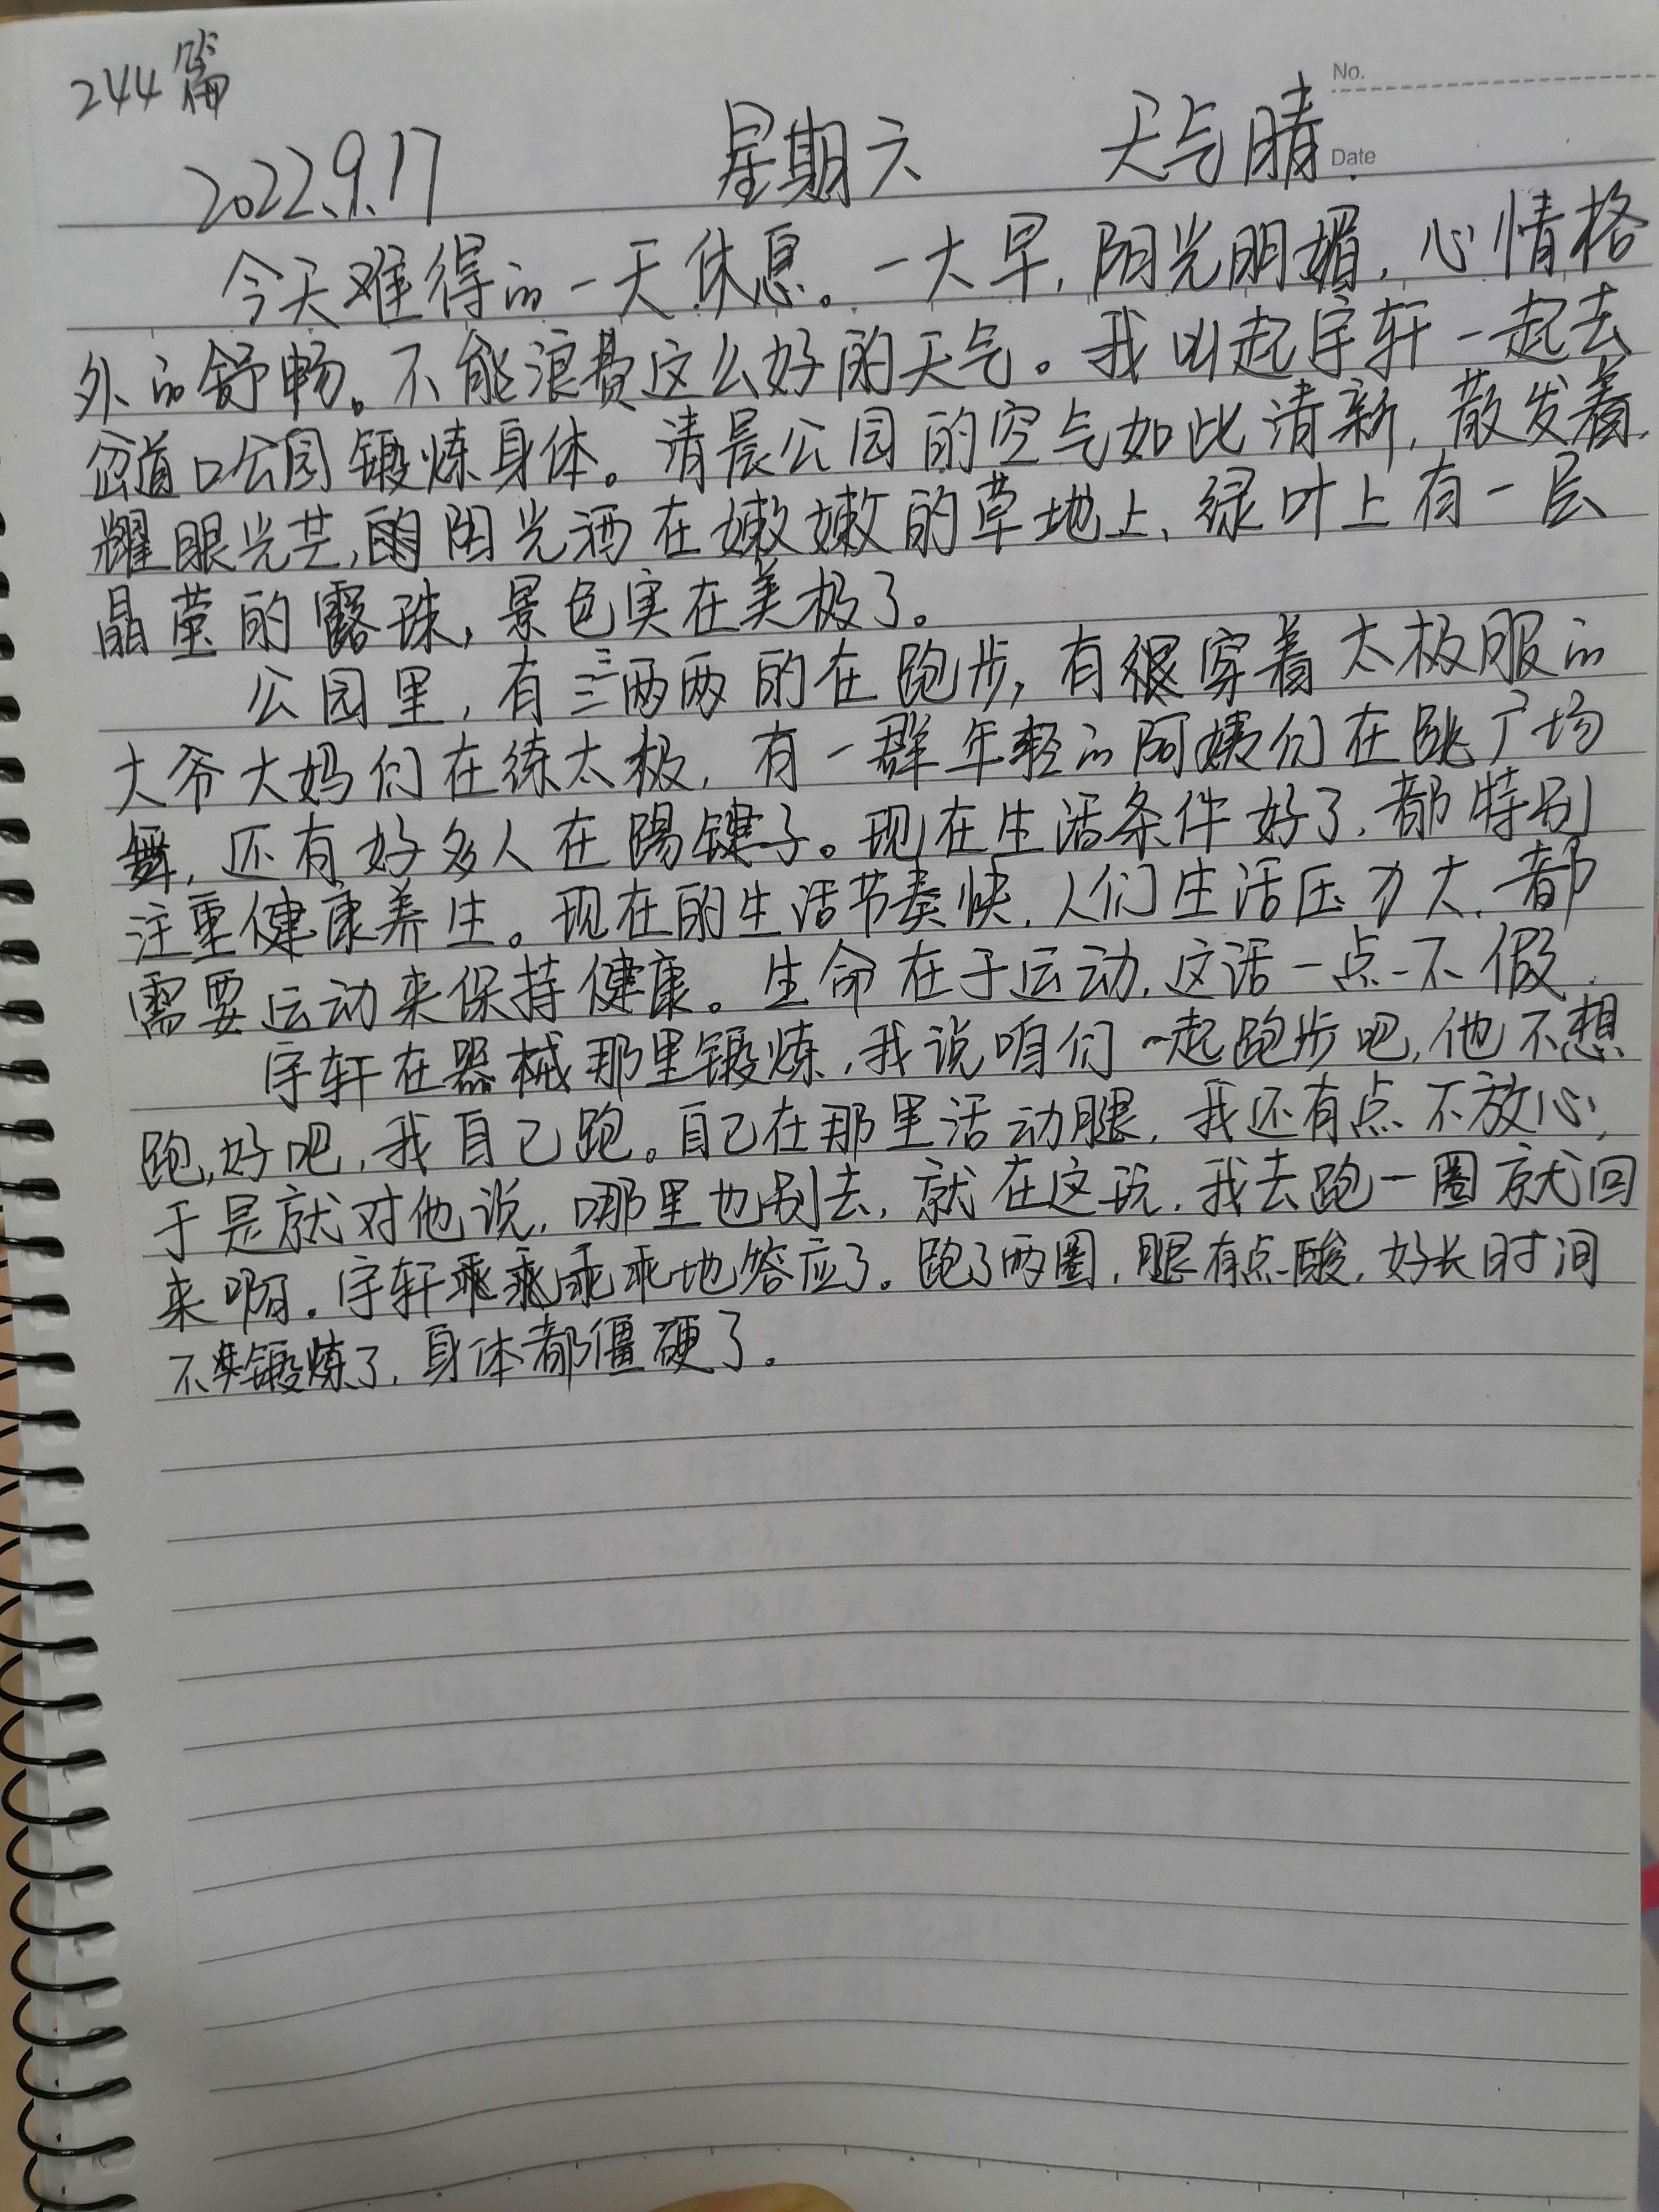 244篇
No.
2022.9.17 星期六 天气晴.
Date
今天难得的一天休息。一大早,阳光明媚,心情格
外的舒畅。不能浪费这么好的天气。我叫起宇轩一起去
岔道口公园锻炼身体。清晨公园的空气如此清新,散发着
耀眼光芒,的阳光洒在嫩嫩的草地上、绿叶上有一层
晶莹的露珠,景色实在美极了。
公园里,有三三两两的在跑步,有很穿着太极服的
大爷大妈们在练太极,有一群年轻的阿姨们在跳广场
舞,还有好多人在踢毽子。现在生活条件好了,都特别
注重健康养生。现在的生活节奏快,人们生活压力大,都
需要运动来保持健康。生命在于运动,这话一点不假.
宇轩在器械那里锻炼,我说咱们一起跑步吧,他不想
跑,好吧,我自己跑。自己在那里活动腿,我还有点不放心,
于是就对他说,哪里也别去,就在这玩,我去跑一圈就回
来啊。宇轩乖乖乖乖地答应了。跑了两圈,腿有点酸,好长时间
不锻炼了,身体都僵硬了。